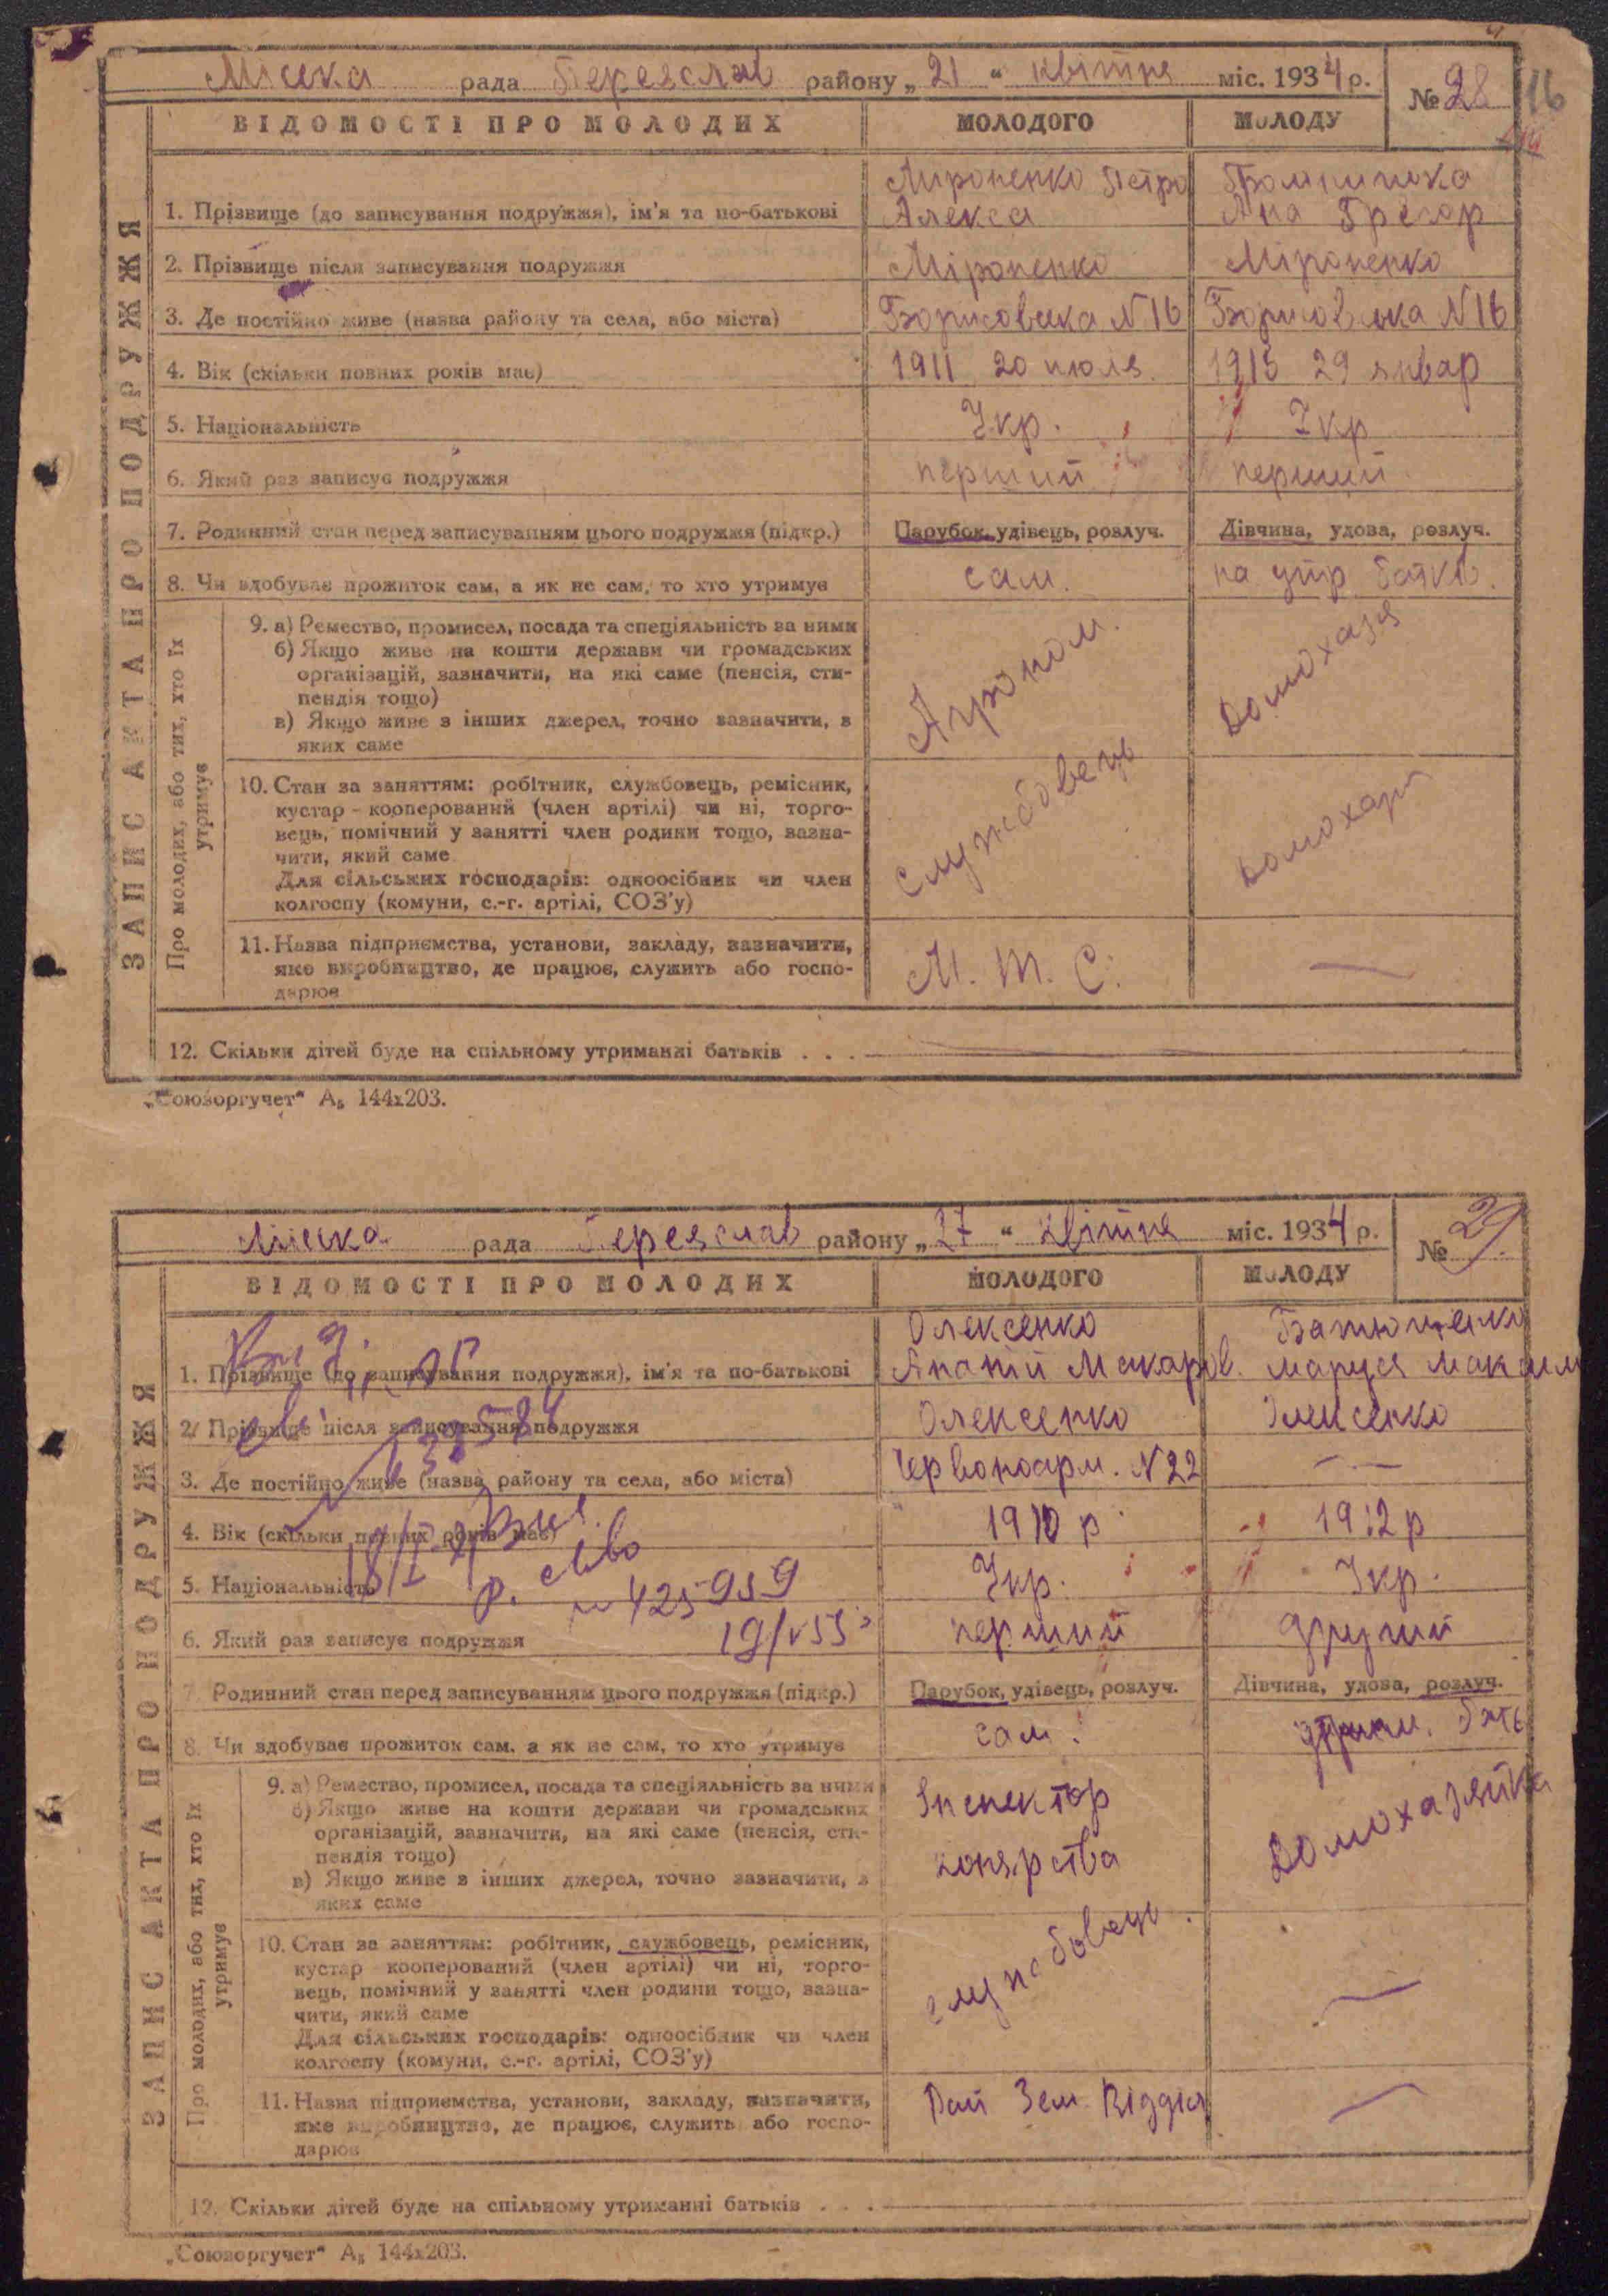 Міська рада Переяслав району „21“ квітня міс. 1934 р.
№ 28 16
ВІДОМОСТІ ПРО МОЛОДИХ МОЛОДОГО МОЛОДУ
ЗАПИС АКТА ПРО ПОДРУЖЖЯ
Мироненко Петро
1. Прізвище (до записування подружжя), ім'я та по-батькові Алекса Ана Грегор
2. Прізвище після записування подружжя Міроненко Міроненко
3. Де постійно живе (назва району та села, або міста) Борисовська N 16 Борисовська N 16
4. Вік (скільки повних років має) 1911 20 июля 1915 29 январ
5. Національність Укр. Укр
6. Який раз записує подружжя перший перший
7. Родинний стан перед записуванням цього подружжя (підкр.) Парубок, удівець, розлуч. Дівчина, удова, розлуч.
8. Чи здобуває прожиток сам, а як не сам, то хто утримує сам. на утр. батьків.
Про молодих, або тих, хто їх утримує
9. а) Ремество, промисел, посада та спеціяльність за ними
б) Якщо живе на кошти держави чи громадських
організацій, зазначити, на які саме (пенсія, сти-
пендія тощо)
в) Якщо живе з інших джерел, точно зазначити, з
яких саме
Агроном. Домохазя
10. Стан за заняттям: робітник, службовець, ремісник,
кустар - кооперований (член артілі) чи ні, торго-
вець, помічний у занятті член родини тощо, зазна-
чити, який саме
Для сільських господарів: одноосібник чи член
колгоспу (комуни, с.-г. артілі, СОЗ'у)
службовець
11. Назва підприємства, установи, закладу, зазначити,
яке виробництво, де працює, служить або госпо-
дарює
М. Т. С. —
12. Скільки дітей буде на спільному утриманні батьків . . .
„Союзоргучет“ А₅ 144х203.
Міська рада Переяслав району „27“ квітня міс. 1934 р.
№ 29.
ВІДОМОСТІ ПРО МОЛОДИХ МОЛОДОГО МОЛОДУ
ЗАПИС АКТА ПРО ПОДРУЖЖЯ
Олексенко Батющенко
1. Прізвище (до записування подружжя), ім'я та по-батькові Ананій Макаров. Маруся Максим
2. Прізвище після записування подружжя Олексенко Олексенко
3. Де постійно живе (назва району та села, або міста) Червоноарм. N 22 —
4. Вік (скільки повних років має) 1910 р 1912 р
5. Національність Укр. Укр.
№ 425959
6. Який раз записує подружжя перший другий
7. Родинний стан перед записуванням цього подружжя (підкр.) Парубок, удівець, розлуч. Дівчина, удова, розлуч.
8. Чи здобуває прожиток сам, а як не сам, то хто утримує сам.
Про молодих, або тих, хто їх утримує
9. а) Ремество, промисел, посада та спеціяльність за ними
б) Якщо живе на кошти держави чи громадських
організацій, зазначити, на які саме (пенсія, сти-
пендія тощо)
в) Якщо живе з інших джерел, точно зазначити, з
яких саме
Інспектор
конярства
Домохазяйка
10. Стан за заняттям: робітник, службовець, ремісник,
кустар кооперований (член артілі) чи ні, торго-
вець, помічний у занятті член родини тощо, зазна-
чити, який саме
Для сільських господарів: одноосібник чи член
колгоспу (комуни, с.-г. артілі, СОЗ'у)
службовець. —
11. Назва підприємства, установи, закладу, зазначити,
яке виробництво, де працює, служить або госпо-
дарює
Рай Зем. Відділ —
12. Скільки дітей буде на спільному утриманні батьків . . .
„Союзоргучет“ А₅ 144х203.